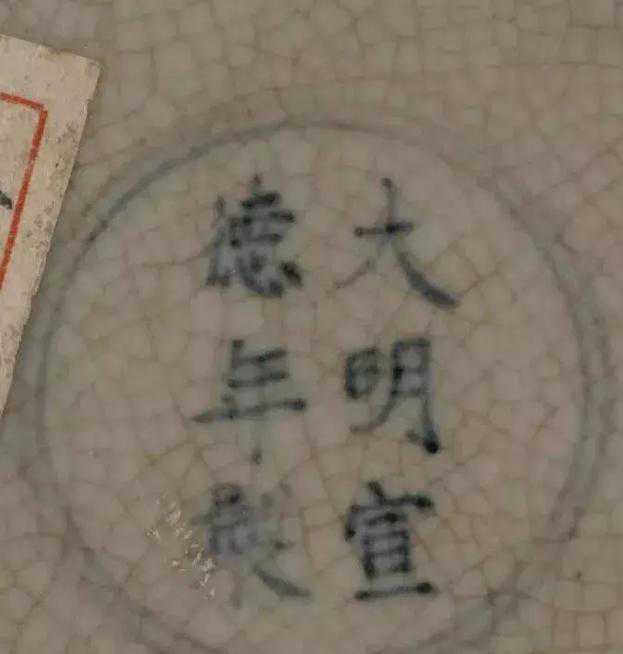 大明宣
德年製